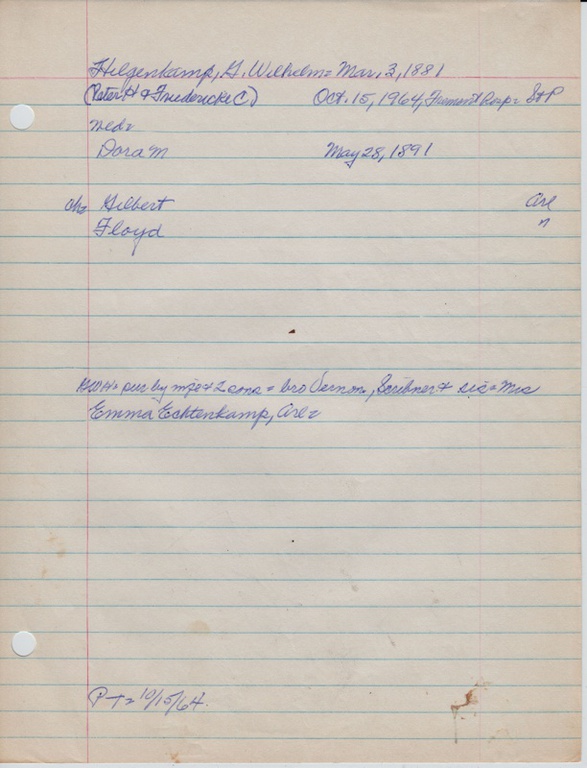 Hilgenkamp, G. Wilhelm = Mar. 3, 1881
(Peter H & Friedericke C) Oct. 15, 1964, Fremont Hosp = St P
wed =
Dora M May 28, 1891
ch = Gilbert Arl
Floyd "
GWH = sur by wife & 2 sons = bro Vernon, Scribner & sis = Mrs
Emma Echtenkamp, Arl =
P-T = 10/15/64.